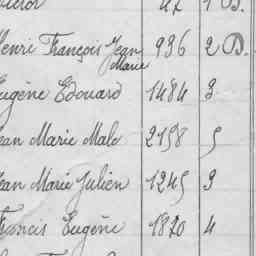 Henri François Jean Marie 936 2 D.
Eugène Edouard 1484 3
Jean Marie Malo 2158 5
Jean Marie Julien 1245 3
Francis Eugène 1870 4